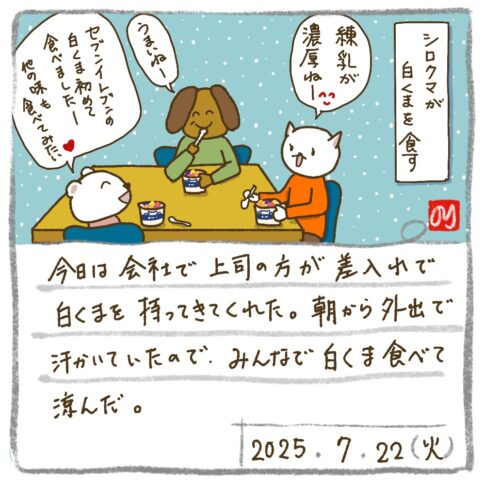 シロクマが
白くまを食す
練乳が
濃厚ねー
うまいねー
セブンイレブンの
白くま初めて
食べましたー
他の味も
食べてみたい
今日は会社で上司の方が差入れで
白くまを持ってきてくれた。朝から外出で
汗かいていたので、みんなで白くま食べて
涼んだ。
2025.7.22(火)